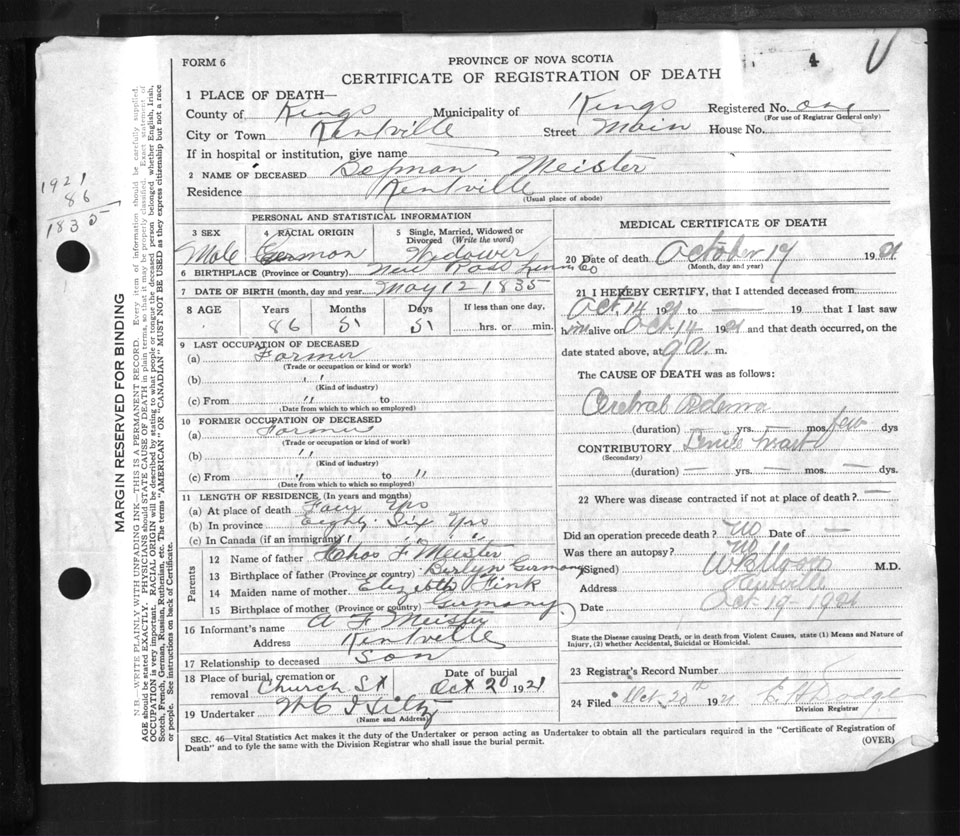 FORM 6
PROVINCE OF NOVA SCOTIA
4
CERTIFICATE OF REGISTRATION OF DEATH
1 PLACE OF DEATH—
County of Kings Municipality of Kings Registered No. one
(For use of Registrar General only)
City or Town Kentville Street Main House No.
If in hospital or institution, give name
2 NAME OF DECEASED Meister
Residence Kentville
(Usual place of abode)
1921
86
1835
PERSONAL AND STATISTICAL INFORMATION
3 SEX 4 RACIAL ORIGIN 5 Single, Married, Widowed or Divorced (Write the word)
Male German Widower
6 BIRTHPLACE (Province or Country) New Ross Lunen Co
7 DATE OF BIRTH (month, day and year) May 12 1835
8 AGE Years Months Days If less than one day,
86 5 5 hrs. or min.
9 LAST OCCUPATION OF DECEASED
(a) Farmer
(Trade or occupation or kind or work)
(b) "
(Kind of industry)
(c) From " to
(Date from which to which so employed)
10 FORMER OCCUPATION OF DECEASED
(a) Farmer
(Trade or occupation or kind of work)
(b) "
(Kind of industry)
(c) From " to "
(Date from which to which so employed)
11 LENGTH OF RESIDENCE (In years and months)
(a) At place of death Four Yrs
(b) In province Eighty Six Yrs
(c) In Canada (if an immigrant) " "
Parents
12 Name of father Thos F Meister
13 Birthplace of father (Province or country) Berlyn Germany
14 Maiden name of mother Elizabeth Fink
15 Birthplace of mother (Province or country) Germany
16 Informant's name A F Meister
Address Kentville
17 Relationship to deceased Son
18 Place of burial, cremation or removal Church St Date of burial Oct 20 1921
19 Undertaker W C Hiltz
(Name and Address)
MEDICAL CERTIFICATE OF DEATH
20 Date of death October 19 1921
(Month, day and year)
21 I HEREBY CERTIFY, that I attended deceased from
Oct. 14 1921 to — 19 — that I last saw
him alive on Oct. 14 1921 and that death occurred, on the
date stated above, at 9 a. m.
The CAUSE OF DEATH was as follows:
Cerebral Odema
(duration) — yrs. — mos. few dys
CONTRIBUTORY
(Secondary)
(duration) — yrs. — mos. — dys.
22 Where was disease contracted if not at place of death? —
Did an operation precede death? no Date of —
Was there an autopsy? no
(Signed) M.D.
Kentville
Date Oct 19 1921
State the Disease causing Death, or in death from Violent Causes, state (1) Means and Nature of
Injury, (2) whether Accidental, Suicidal or Homicidal.
23 Registrar's Record Number
24 Filed Oct. 20th 1921
Division Registrar
SEC. 46—Vital Statistics Act makes it the duty of the Undertaker or person acting as Undertaker to obtain all the particulars required in the "Certificate of Registration of
Death" and to fyle the same with the Division Registrar who shall issue the burial permit.
(OVER)
MARGIN RESERVED FOR BINDING
N.B.—WRITE PLAINLY WITH UNFADING INK—THIS IS A PERMANENT RECORD. Every item of information should be carefully supplied.
AGE should be stated EXACTLY. PHYSICIANS should STATE CAUSE OF DEATH in plain terms, so that it may be properly classified. Exact statement of
OCCUPATION is very important. RACIAL ORIGIN will be described by stating to what people or tongue the deceased person belonged whether English, Irish,
Scotch, French, German, Russian, Ruthenian, etc. The terms "AMERICAN" OR "CANADIAN" MUST NOT BE USED as they express citizenship but not a race
or people. See instructions on back of Certificate.